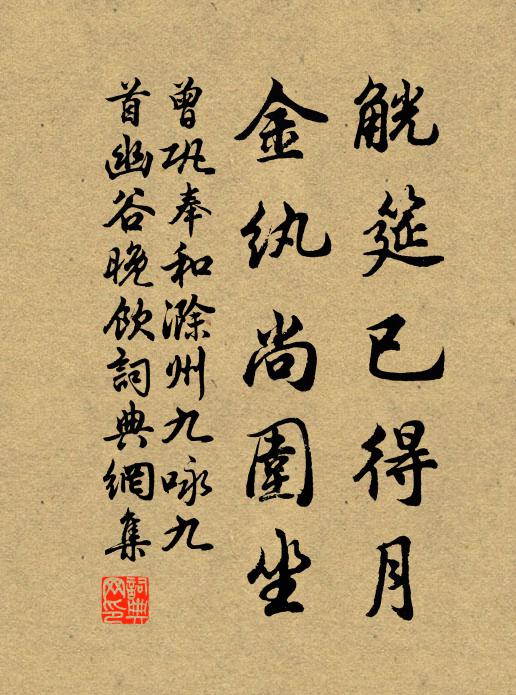 觥筵已得月
金纨尚圍坐
曾巩奉和滁州九咏九
首幽谷晚飲詞典網集
詞典网印